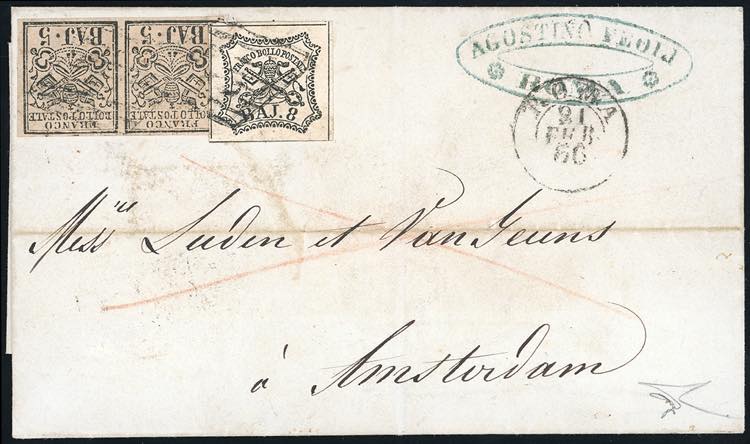 BAJ. 5
FRANCO
BOLLO POSTALE
BAJ. 5
FRANCO
BOLLO POSTALE
FRANCO BOLLO POSTALE
BAJ. 8
AGOSTINO FEOLI
ROMA
ROMA
21
FEB
66
Mess.rs Luden et Van Geuns
à Amsterdam